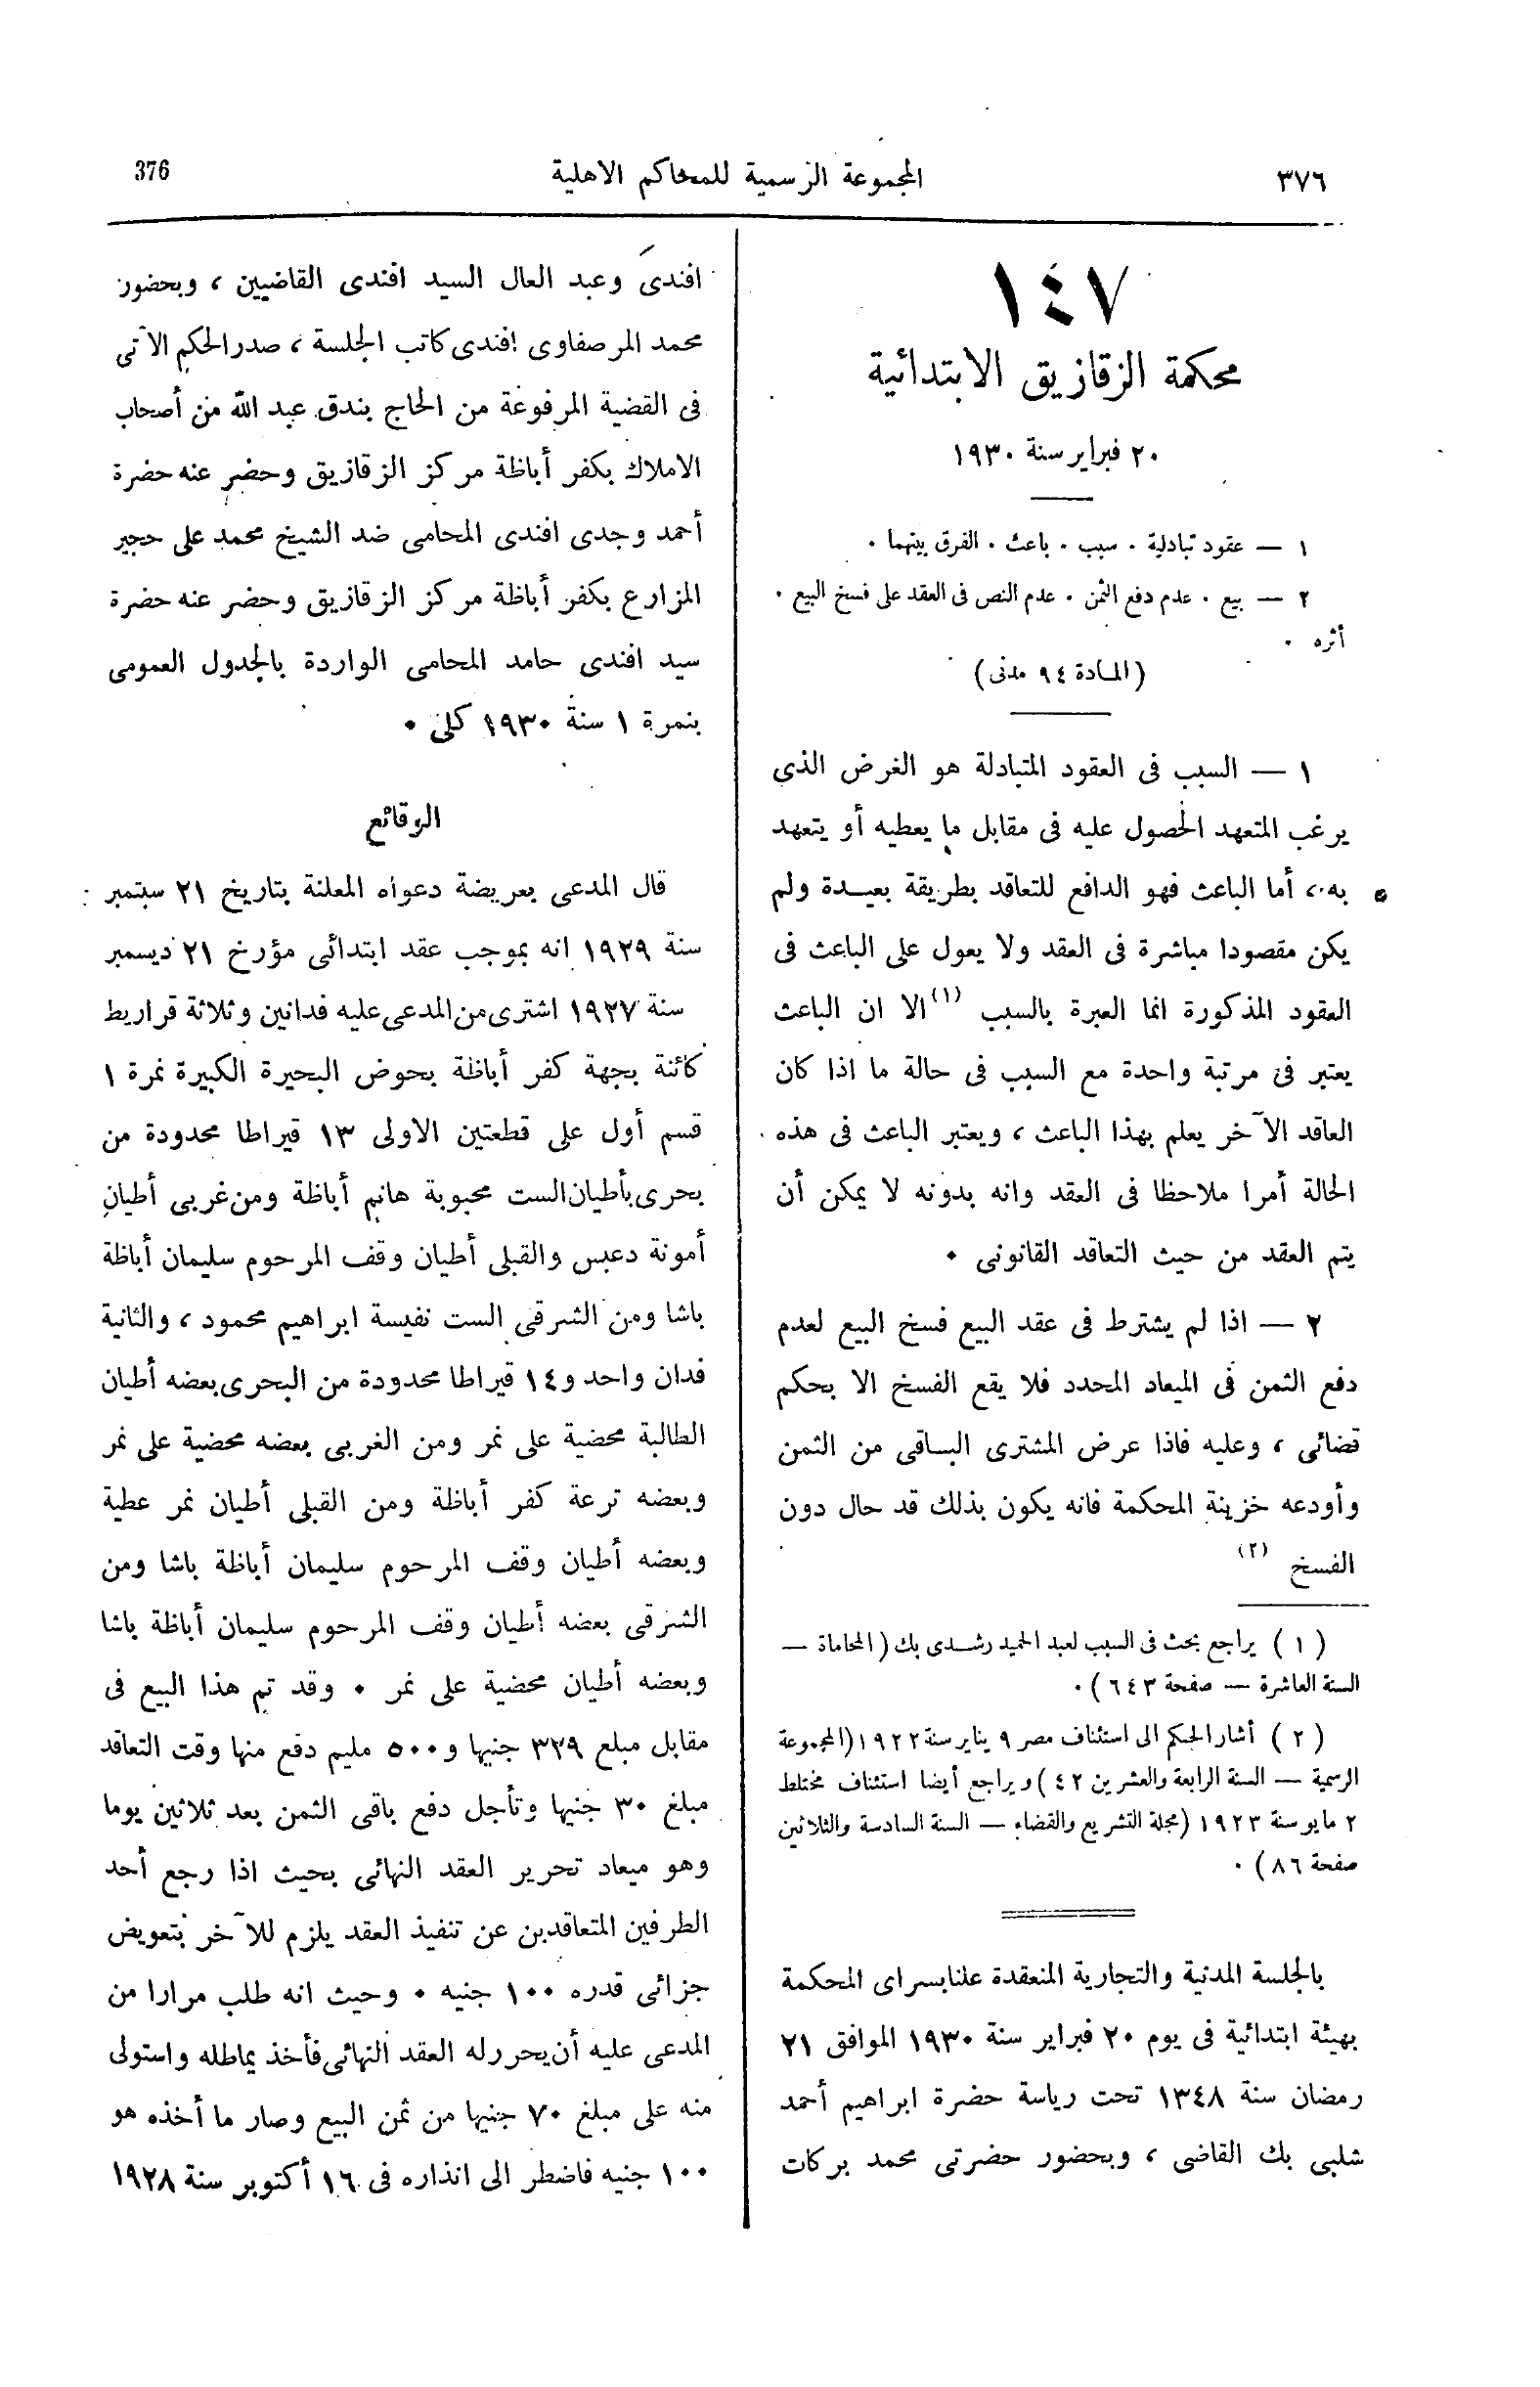 ٣٧٦
المجموعة الرسمية للمحاكم الاهلية
376
١٤٧
محكمة الزقازيق الابتدائية
٢٠ فبراير سنة ١٩٣٠
١ — عقود تبادلية ٠ سبب ٠ باعث ٠ الفرق بينهما ٠
٢ — بيع ٠ عدم دفع الثمن ٠ عدم النص فى العقد على فسخ البيع ٠
أثره ٠
(المادة ٩٤ مدنى)
١ — السبب فى العقود المتبادلة هو الغرض الذى
يرغب المتعهد الحصول عليه فى مقابل ما يعطيه أو يتعهد
به، أما الباعث فهو الدافع للتعاقد بطريقة بعيدة ولم
يكن مقصودا مباشرة فى العقد ولا يعول على الباعث فى
العقود المذكورة انما العبرة بالسبب (١) الا ان الباعث
يعتبر فى مرتبة واحدة مع السبب فى حالة ما اذا كان
العاقد الآخر يعلم بهذا الباعث ، ويعتبر الباعث فى هذه
الحالة أمرا ملاحظا فى العقد وانه بدونه لا يمكن أن
يتم العقد من حيث التعاقد القانونى ٠
٢ — اذا لم يشترط فى عقد البيع فسخ البيع لعدم
دفع الثمن فى الميعاد المحدد فلا يقع الفسخ الا بحكم
قضائى ، وعليه فاذا عرض المشترى الباقى من الثمن
وأودعه خزينة المحكمة فانه يكون بذلك قد حال دون
الفسخ (٢)
(١) يراجع بحث فى السبب لعبد الحميد رشدى بك (المحاماة —
السنة العاشرة — صفحة ٦٤٣) ٠
(٢) أشار الحكم الى استئناف مصر ٩ يناير سنة ١٩٢٢ (المجموعة
الرسمية — السنة الرابعة والعشرين ٤٢) ويراجع أيضا استئناف مختلط
٢ مايو سنة ١٩٢٣ (مجلة التشريع والقضاء — السنة السادسة والثلاثين
صفحة ٨٦) ٠
بالجلسة المدنية والتجارية المنعقدة علنا بسراى المحكمة
بهيئة ابتدائية فى يوم ٢٠ فبراير سنة ١٩٣٠ الموافق ٢١
رمضان سنة ١٣٤٨ تحت رياسة حضرة ابراهيم أحمد
شلبى بك القاضى ، وبحضور حضرتى محمد بركات
افندى وعبد العال السيد افندى القاضيين ، وبحضور
محمد المرصفاوى افندى كاتب الجلسة ، صدر الحكم الآتى
فى القضية المرفوعة من الحاج بندق عبد الله من أصحاب
الاملاك بكفر أباظة مركز الزقازيق وحضر عنه حضرة
أحمد وجدى افندى المحامى ضد الشيخ محمد على حجير
المزارع بكفر أباظة مركز الزقازيق وحضر عنه حضرة
سيد افندى حامد المحامى الواردة بالجدول العمومى
بنمرة ١ سنة ١٩٣٠ كلى ٠
الوقائع
قال المدعى بعريضة دعواه المعلنة بتاريخ ٢١ سبتمبر
سنة ١٩٢٩ انه بموجب عقد ابتدائى مؤرخ ٢١ ديسمبر
سنة ١٩٢٧ اشترى من المدعى عليه فدانين وثلاثة قراريط
كائنة بجهة كفر أباظة بحوض البحيرة الكبيرة نمرة ١
قسم أول على قطعتين الاولى ١٣ قيراطا محدودة من
بحرى بأطيان الست محبوبة هانم أباظة ومن غربى أطيان
أمونة دعبس والقبلى أطيان وقف المرحوم سليمان أباظة
باشا ومن الشرقى الست نفيسة ابراهيم محمود ، والثانية
فدان واحد و١٤ قيراطا محدودة من البحرى بعضه أطيان
الطالبة محضية على نمر ومن الغربى بعضه محضية على نمر
وبعضه ترعة كفر أباظة ومن القبلى أطيان نمر عطية
وبعضه أطيان وقف المرحوم سليمان أباظة باشا ومن
الشرقى بعضه أطيان وقف المرحوم سليمان أباظة باشا
وبعضه أطيان محضية على نمر ٠ وقد تم هذا البيع فى
مقابل مبلغ ٣٢٩ جنيها و٥٠٠ مليم دفع منها وقت التعاقد
مبلغ ٣٠ جنيها وتأجل دفع باقى الثمن بعد ثلاثين يوما
وهو ميعاد تحرير العقد النهائى بحيث اذا رجع أحد
الطرفين المتعاقدين عن تنفيذ العقد يلزم للآخر بتعويض
جزائى قدره ١٠٠ جنيه ٠ وحيث انه طلب مرارا من
المدعى عليه أن يحرر له العقد النهائى فأخذ يماطله واستولى
منه على مبلغ ٧٠ جنيها من ثمن البيع وصار ما أخذه هو
١٠٠ جنيه فاضطر الى انذاره فى ١٦ أكتوبر سنة ١٩٢٨